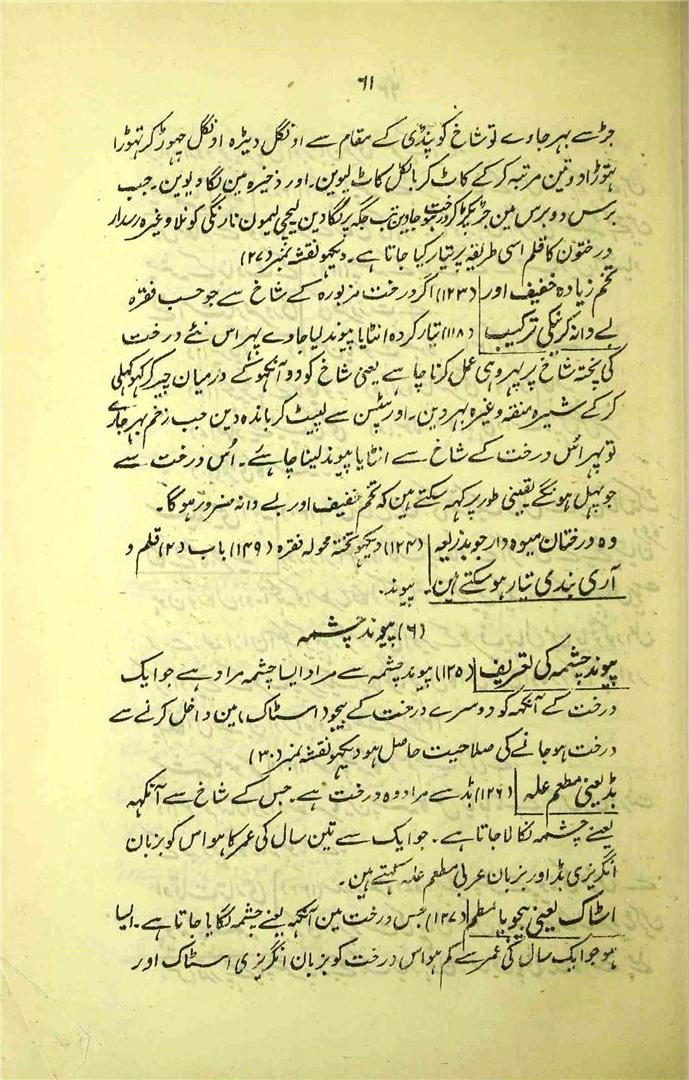 ۶۱
جڑسے بہر جاوے تو شاخ کو پنڈی کے مقام سے اونگل دیڑہ اونگل چہوڑ کر تہوڑا
تہوڑا دو تین مرتبہ کر کے کاٹ کر بالکل کاٹ لیوین۔ اور ذخیرہ مین لگا دیوین۔ جب
برس دو برس مین جڑ پکڑ کر درخت ہوجاوین تب جگہ پر لگا دین لیچی لیمون نارنگی کونلا وغیرہ رسدار
درختون کا قلم اسی طریقہ پر تیار کیا جاتا ہے۔ دیکہو نقشہ نمبر (۲۷)
تخم زیادہ خفیف اور (۱۲۳) اگر درخت مزبورہ کے شاخ سے جو حسب فقرہ
بے دانہ کرنیکی ترکیب (۱۱۸) تیار کردہ انٹایا پیوند لیا جاوے پہر اس نئے درخت
کی پختہ شاخ پر پہر وہی عمل کرنا چاہے یعنی شاخ کو دو آنکہونکے درمیان چیر کر کہوکہلی
کر کے شیرہ منقہ وغیرہ بہر دین۔ اور پٹسن سے لپیٹ کر باندہ دین جب زخم بہر جاوے
تو پہر اُس درخت کے شاخ سے انٹا یا پیوند لینا چاہئے۔ اُس درخت سے
جو پہل ہونگے یقینی طور پر کہہ سکتے ہین کہ تخم خفیف اور بے دانہ ضرور ہوگا۔
وہ درختان میوہ دار جو بذریعہ (۱۲۴) دیکہو تختہ محولہ فقرہ (۱۴۹) باب (۲) قلم و
آری بندی تیار ہوسکتے ہین۔ پیوند۔
(۶) پیوند چشمہ
پیوند چشمہ کی تعریف (۱۲۵) پیوند چشمہ سے مراد ایسا چشمہ مراد ہے جو ایک
درخت کے آنکہہ کو دوسرے درخت کے بیجو (اسٹاک) مین داخل کرنے سے
درخت ہوجانے کی صلاحیت حاصل ہو دیکہو نقشہ نمبر (۳۰)
بڈ یعنی مطعم علہ (۱۲۶) بڈ سے مراد وہ درخت ہے۔ جس کے شاخ سے آنکہہ
یعنے چشمہ نکالا جاتا ہے۔ جو ایک سے تین سال کی عمر کا ہو اس کو بزبان
انگریزی بڈ اور بزبان عربی مطعم علہ کہتے ہین۔
اسٹاک یعنی بیجو یا مطعم (۱۲۷) جس درخت مین آنکہہ یعنے چشمہ لگایا جاتا ہے۔ ایسا
ہو جو ایک سال کی عمر سے کم ہو اس درخت کو بزبان انگریزی اسٹاک اور